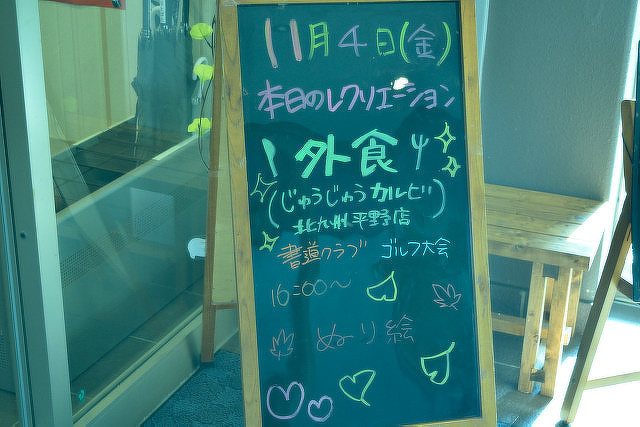 11月4日(金)
本日のレクリエーション
外食
(じゅうじゅうカルビ)
北九州平野店
書道クラブ ゴルフ大会
16:00〜
ぬり絵